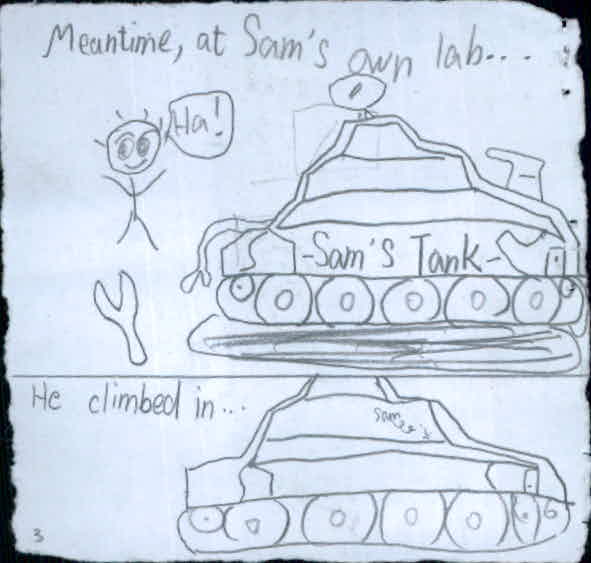 Meantime, at Sam's own lab....
Ha!
-Sam's Tank-
He climbed in...
Sam
3